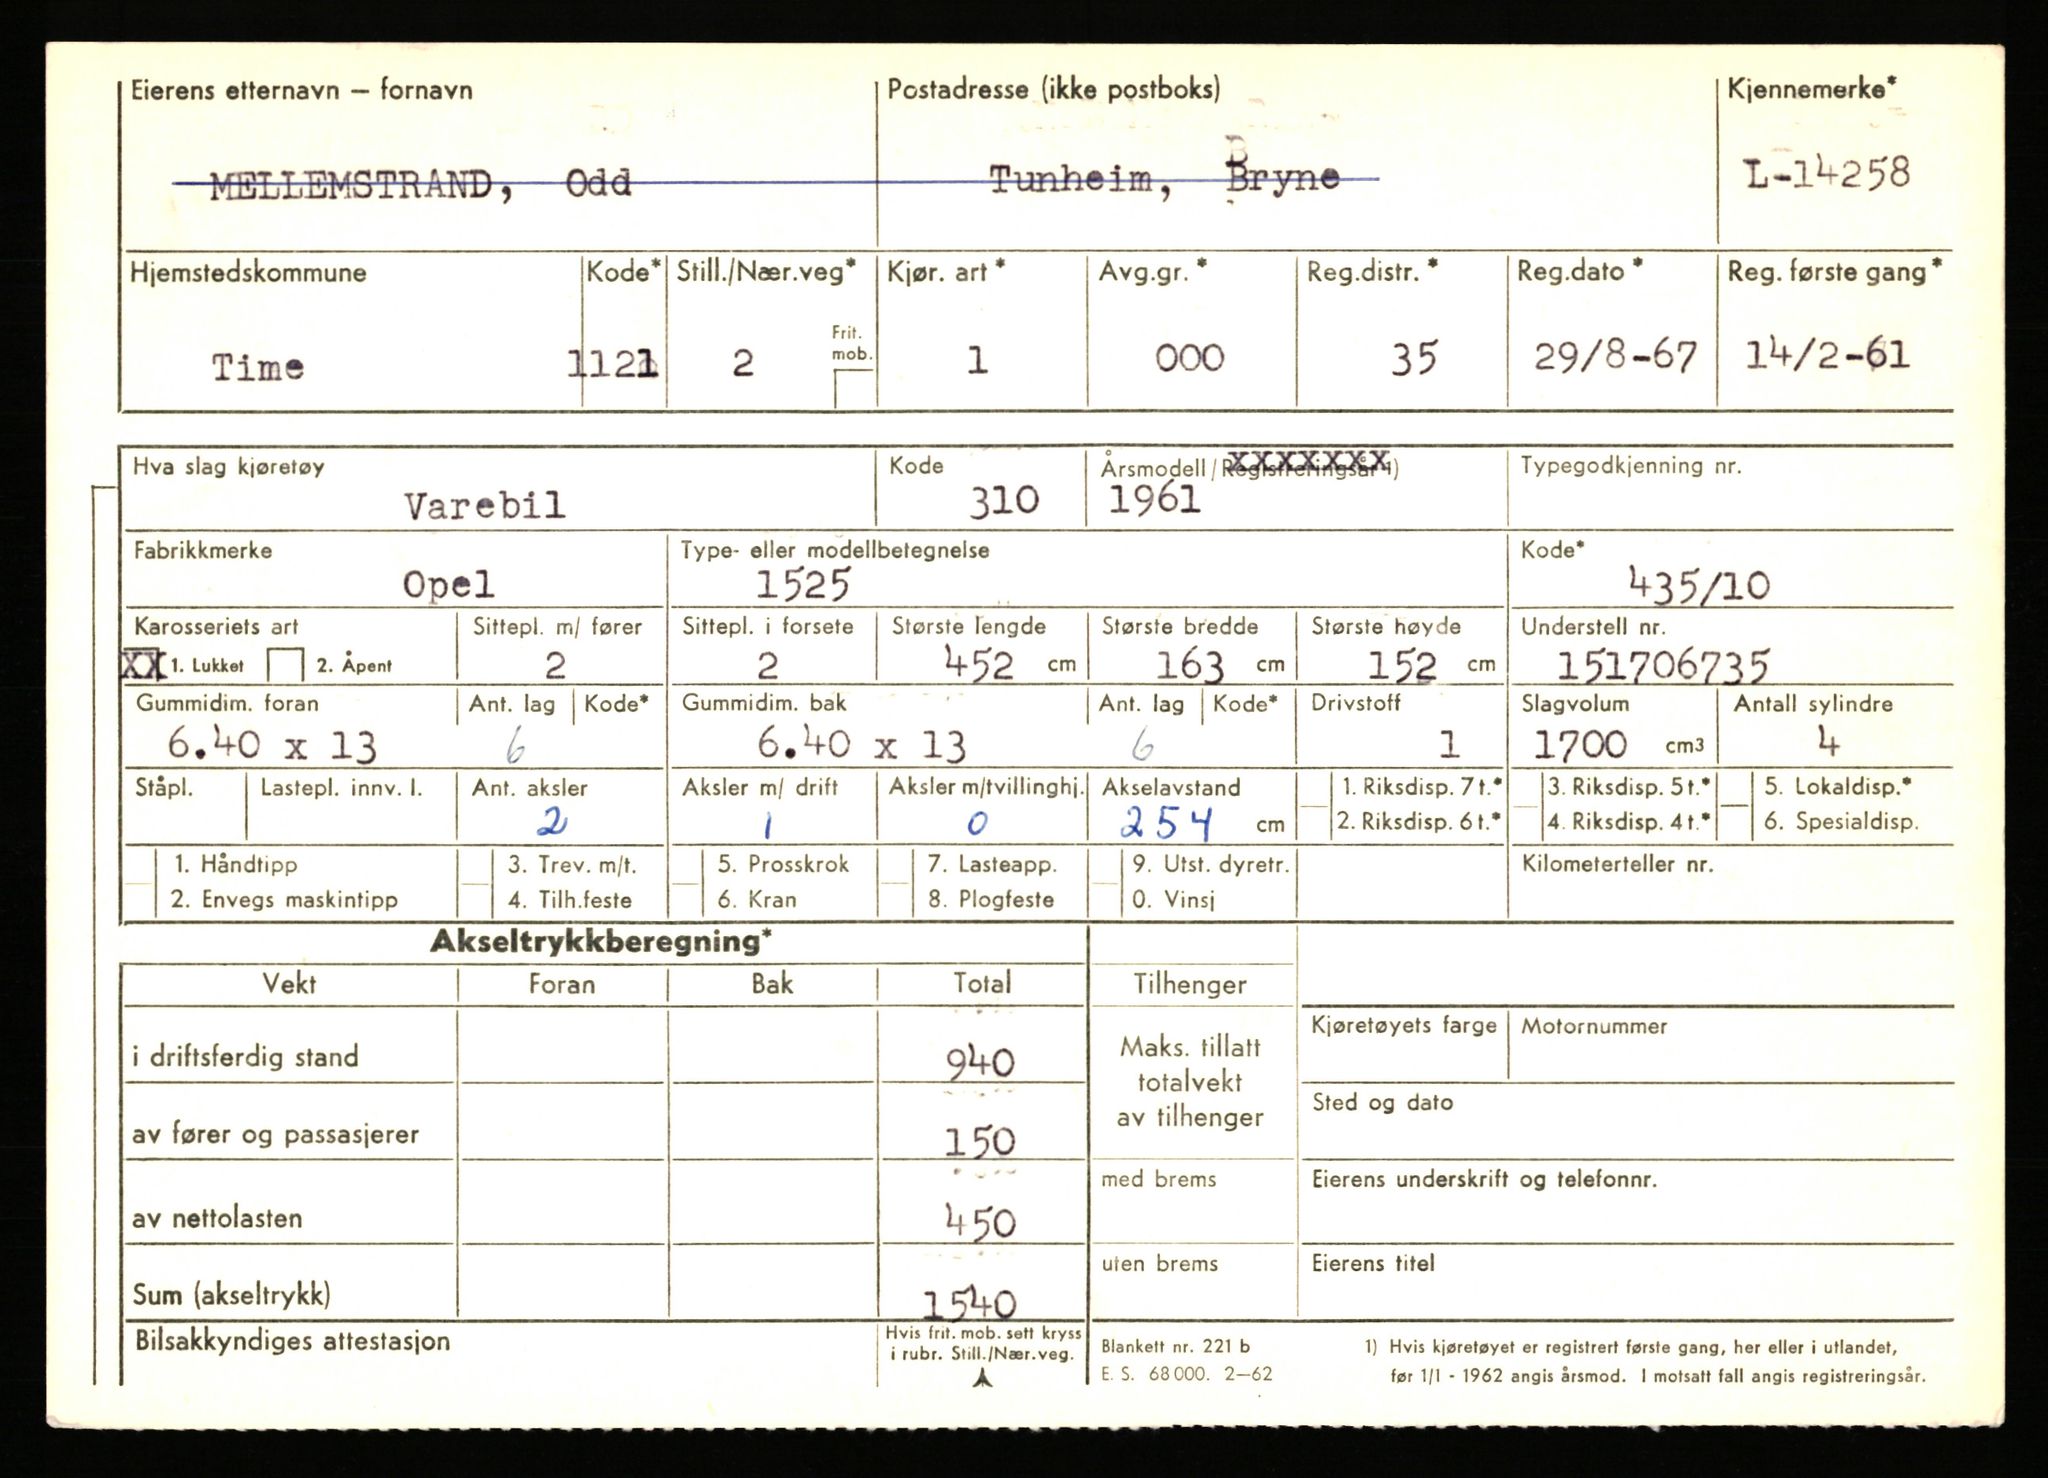 Eierens etternavn — fornavn Postadresse (ikke postboks) Kjennemerke*
MELLEMSTRAND, Odd Tunheim, Bryne L-14258
Hjemstedskommune Kode* Still./Nær.veg* Kjør. art* Avg.gr.* Reg.distr.* Reg.dato* Reg. første gang*
Frit. mob.
Time 1121 2 1 000 35 29/8-67 14/2-61
Hva slag kjøretøy Kode Årsmodell/Registreringsår 1) Typegodkjenning nr.
Varebil 310 1961
Fabrikkmerke Type- eller modellbetegnelse Kode*
Opel 1525 435/10
Karosseriets art Sittepl. m/ fører Sittepl. i forsete Største lengde Største bredde Største høyde Understell nr.
XX 1. Lukket 2. Åpent 2 2 452 cm 163 cm 152 cm 151706735
Gummidim. foran Ant. lag Kode* Gummidim. bak Ant. lag Kode* Drivstoff Slagvolum Antall sylindre
6.40 x 13 6 6.40 x 13 6 1 1700 cm3 4
Ståpl. Lastepl. innv. l. Ant. aksler Aksler m/ drift Aksler m/tvillinghj. Akselavstand 1. Riksdisp. 7 t.* 3. Riksdisp. 5 t.* 5. Lokaldisp.*
2 1 0 254 cm 2. Riksdisp. 6 t.* 4. Riksdisp. 4 t.* 6. Spesialdisp.
1. Håndtipp 3. Trev. m/t. 5. Prosskrok 7. Lasteapp. 9. Utst. dyretr. Kilometerteller nr.
2. Envegs maskintipp 4. Tilh.feste 6. Kran 8. Plogfeste 0. Vinsj
Akseltrykkberegning*
Vekt Foran Bak Total Tilhenger
Kjøretøyets farge Motornummer
i driftsferdig stand 940 Maks. tillatt
totalvekt
Sted og dato
av tilhenger
av fører og passasjerer 150
med brems Eierens underskrift og telefonnr.
av nettolasten 450
uten brems Eierens titel
Sum (akseltrykk) 1540
Bilsakkyndiges attestasjon Hvis frit. mob. sett kryss Blankett nr. 221 b 1) Hvis kjøretøyet er registrert første gang, her eller i utlandet,
i rubr. Still./Nær.veg. E. S. 68 000. 2—62 før 1/1 - 1962 angis årsmod. I motsatt fall angis registreringsår.